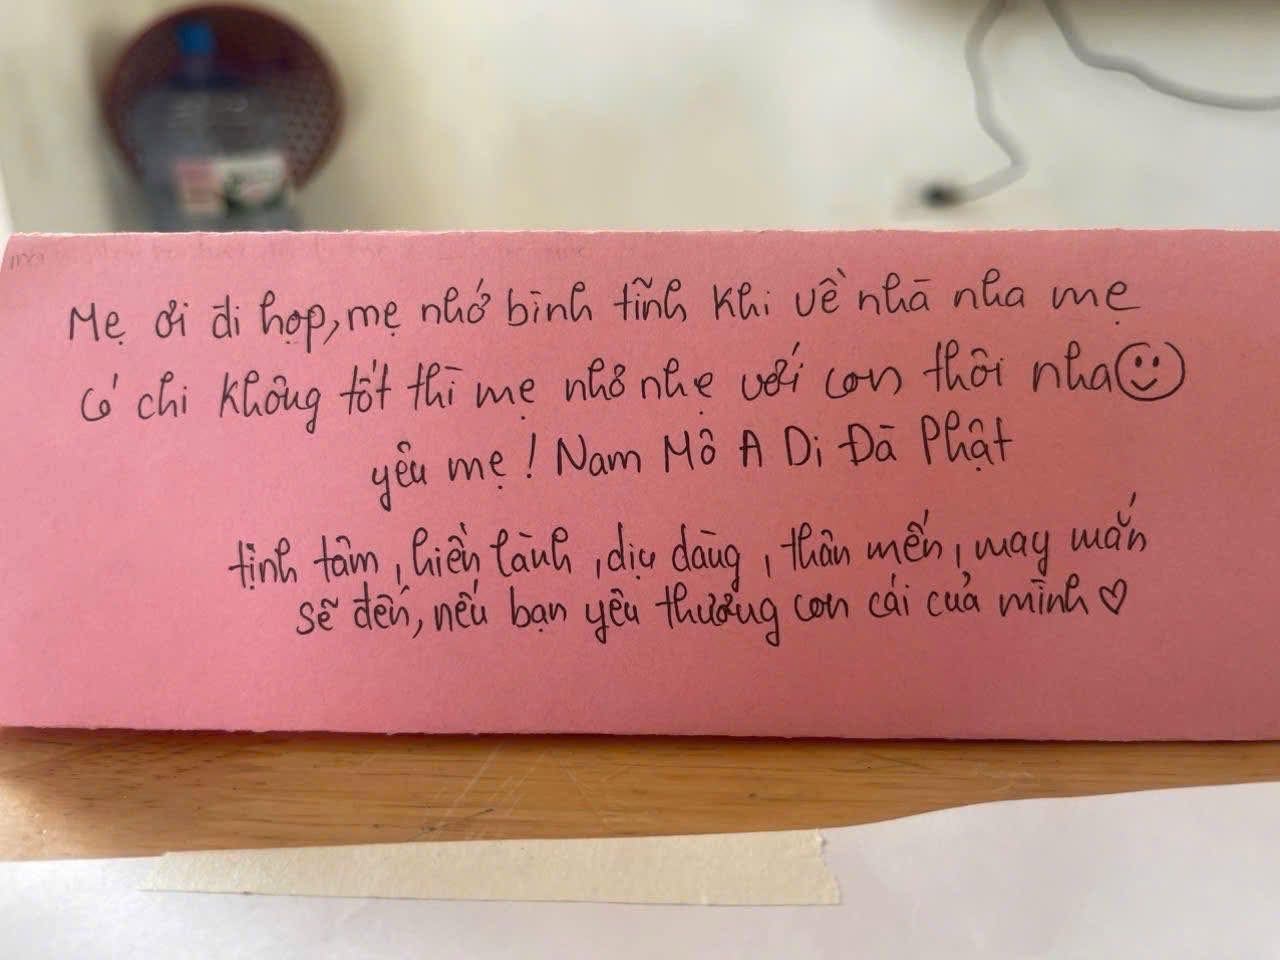 Mẹ ơi đi họp, mẹ nhớ bình tĩnh khi về nhà nha mẹ
Có chi không tốt thì mẹ nhỏ nhẹ với con thôi nha
yêu mẹ! Nam Mô A Di Đà Phật
tịnh tâm, hiền lành, dịu dàng, thân mến, may mắn
sẽ đến, nếu bạn yêu thương con cái của mình